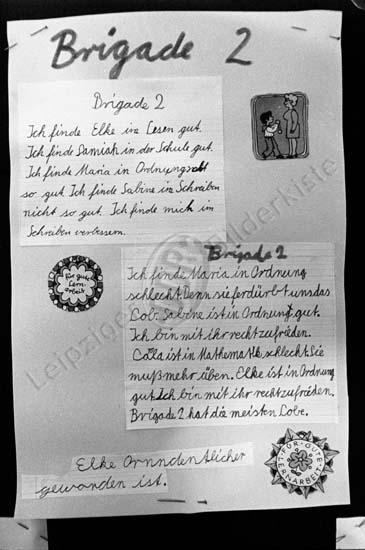 Brigade 2
Brigade 2
Ich finde Elke in Lesen gut.
Ich finde Samiah in der Schule gut.
Ich finde Maria in Ordnung
so gut. Ich finde Sabine in Schreiben
nicht so gut. Ich finde mich im
Schreiben verbessern.
Für gute
Lern-
arbeit
Brigade 2
Ich finde Maria in Ordnung
schlecht. Denn sie ferdürbt uns das
Lob. Sabine ist in Ordnung gut.
Ich bin mit ihr recht zufrieden.
ist in Mathematik schlecht. Sie
muß mehr üben. Elke ist in Ordnung
gut. Ich bin mit ihr recht zufrieden.
Brigade 2 hat die meisten Lobe.
FÜR GUTE
LERNARBEIT
Elke Ornndentlicher
gewonden ist.
Leipziger Bilderkiste